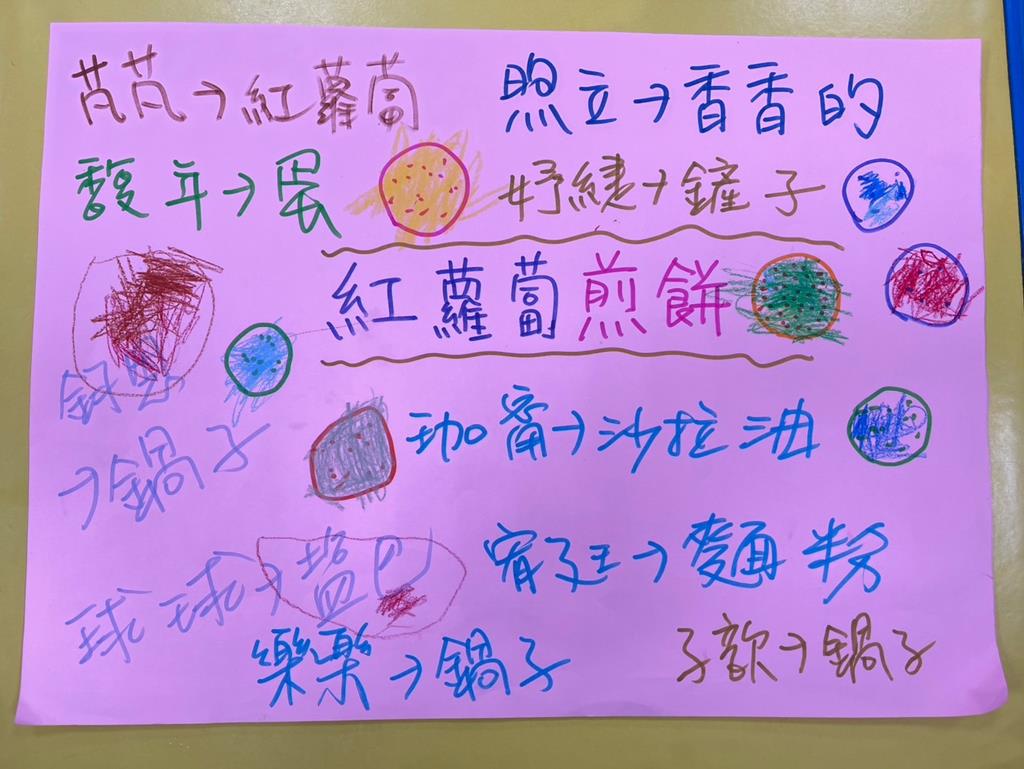 芃芃→紅蘿蔔
煦立→香香的
馥年→蛋
妤緁→鏟子
紅蘿蔔煎餅
→鍋子
珈甯→沙拉油
球球→鹽巴
宥廷→麵粉
樂樂→鍋子
子歆→鍋子